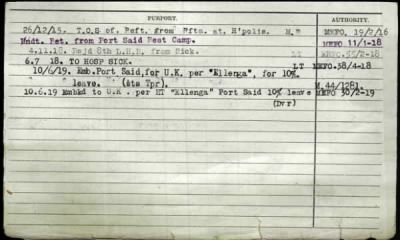 PURPORT. AUTHORITY.
26/12/15. T.O.S of. Reft. from Rfts. at H'polis. M.E MEFO. 19/2/16
Undt. Ret. from Port Said Rest Camp. MEFO 11/1-18
4.11.18. Rejd 8th L.H.R. from Sick. LT MEFO.
6.7 18. TO HOSP SICK. LT MEFO.38/4-18
10/6/19. Emb.Port Said,for U.K. per "Ellenga", for 10%
leave. (êts Tpr). M.44/1281.
10.6.19 Embkd to U.K . per HT "Ellenga" Port Said 10% leave MEFO 30/2-19
(Dvr)